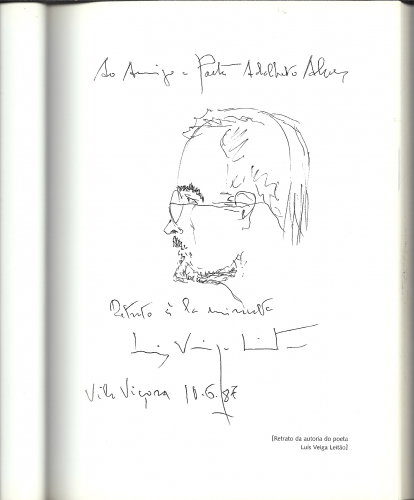 Ao Amigo e Poeta Adalberto Alves
Retrato à la minuta
Luís Veiga Leitão
Vila Viçosa 10.6.87
[Retrato da autoria do poeta
Luís Veiga Leitão]